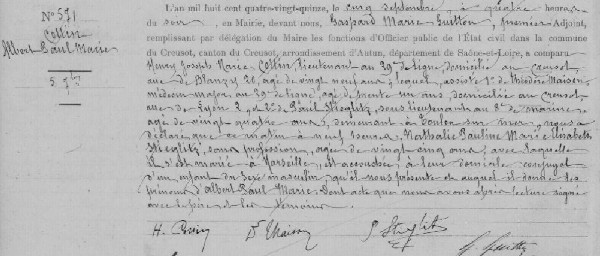 N° 571
Collin
Albert Paul Marie
5 7bre
L'an mil huit cent quatre-vingt-quinze, le cinq septembre, à quatre heures
du soir, en Mairie, devant nous, Gaspard Marie Guitton, premier Adjoint,
remplissant par délégation du Maire les fonctions d'Officier public de l'État civil dans la commune
du Creusot, canton du Creusot, arrondissement d'Autun, département de Saône-et-Loire, a comparu
Henry Joseph Marie Collin, lieutenant au 29e de ligne, domicilié au Creusot,
rue de Blanzy 21, âgé de vingt neuf ans; lequel, assisté 1° de Théodore Maison,
médecin major au 29e de ligne, âgé de trente un ans, domicilié au Creusot,
rue de Lyon 2, et 2° de Paul Steglitz, sous lieutenant au 8e de marine,
âgé de vingt quatre ans, demeurant à Toulon sur mer, nous a
déclaré, que ce matin à neuf heures, Nathalie Pauline Marie Elisabeth
Steglitz, sans profession, âgée de vingt cinq ans, avec laquelle
il s'est marié à Marseille, est accouchée, à leur domicile conjugal
d'un enfant du sexe masculin qu'il nous présente et auquel il donne les
prénoms d'Albert Paul Marie. Dont acte que nous avons après lecture signé
avec le père et les témoins.
H. Collin Dr Maison P Steglitz
G. Guitton